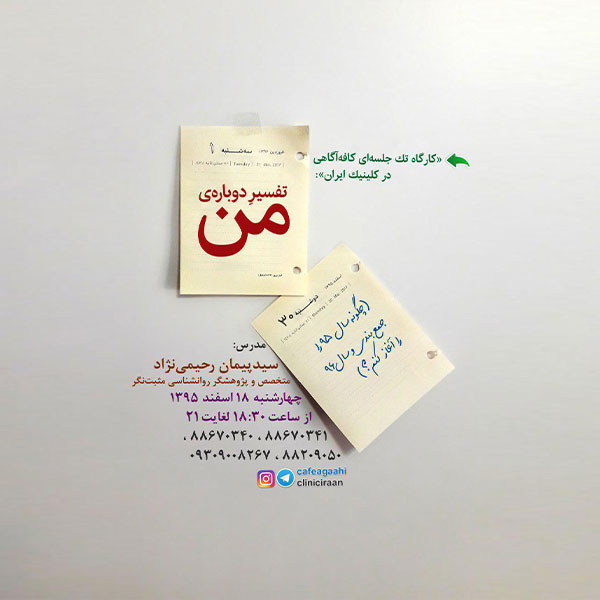 «کارگاه تك جلسه‌ای کافه‌آگاهی
در کلینیك ایران»:
سه‌شنبه ۱
Tuesday
تفسیرِ دوباره‌ی
من
دوشنبه ۳۰
(چگونه سال ۹۵ را
جمع‌بندی و سال ۹۶
را آغاز کنم؟)
مدرس:
سیدپیمان رحیمی‌نژاد
متخصص و پژوهشگر روانشناسی مثبت‌نگر
چهارشنبه ۱۸ اسفند ۱۳۹۵
از ساعت ۱۸:۳۰ لغایت ۲۱
۸۸۶۷۰۳۴۱ ، ۸۸۶۷۰۳۴۰ ،
۸۸۲۰۹۰۵۰ ، ۰۹۳۰۹۰۰۸۲۶۷
cafeagaahi
cliniciraan